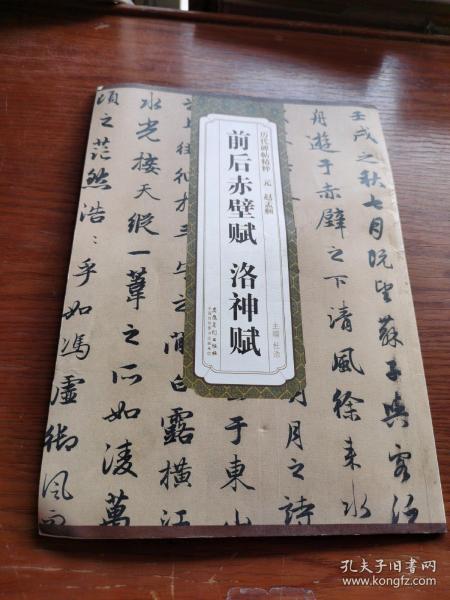 壬戌之秋七月既望蘇子與客泛
舟遊于赤壁之下清風徐来水
月之詩
于東山
之間白露橫江
水光接天縱一葦之所如凌萬
頃之茫然浩:乎如馮虛御風而
历代碑帖精粹 元 赵孟頫
前后赤壁赋 洛神赋
主编 杜浩
安徽美术出版社
孔夫子旧书网
www.kongfz.com